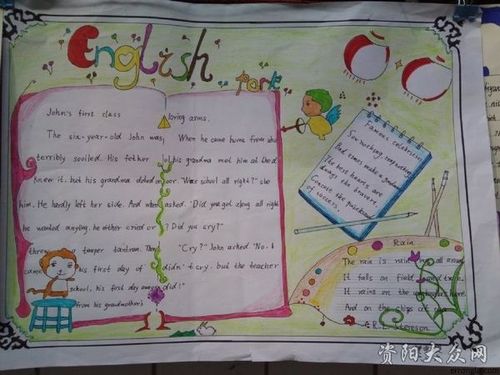 English
park
John's first class
The six-year-old John was
terribly spoiled. His father
knew it, but his grandma
him. He hardly left her side. And when
he wanted anything, he either cried or
threw a temper tantrum. Then
came his first day of
school, his first day away
from his grandmother's
loving arms.
When he came home from
his grandma met him at the
door. "Was school all right?" she
asked. "Did you get along all right
? Did you cry?"
"Cry?" John asked. "No. I
didn't cry, but the teacher
did!"
Famous celebrities
The best hearts are
always the bravest
of success.
Rain
The rain is raining all around
It falls on field and tree
It rains on the umbrellas here
And on the ships at sea
资阳大众网